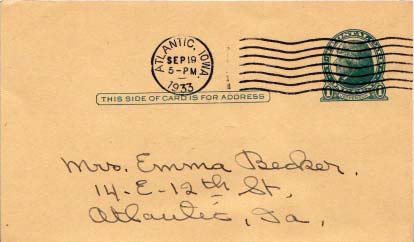 ATLANTIC, IOWA
SEP 19
5-PM
1933
THIS SIDE OF CARD IS FOR ADDRESS
Mrs. Emma Becker,
14-E-12th St,
Atlantic, Ia,